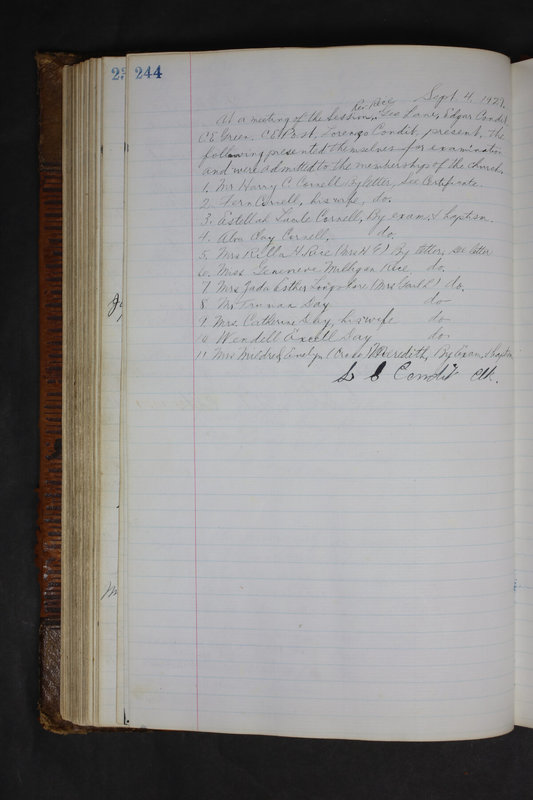 244
Sept. 4, 1921.
At a meeting of the Session, Rev. Rice, Geo Lane, Edgar Condit
C E Green, C E Post, Lorenzo Condit, present, the
following presented themselves for examination
and were admitted to the membership of the church.
1. Mr Harry C. Cornell By letter, see Certificate.
2. Fern Cornell, his wife, do.
3. Cornell, By exam. & baptism.
4. Alva Clay Cornell, do.
5. Mrs Rilla H Rice (Mrs H E) By letter, see letter
6. Miss Genevieve Milligan Rice, do.
7 Mrs Jada Esther Longshore (Mrs) do.
8 Mr Truman Day do
9 Mrs. Catherine Day, his wife do
10 Wendell Excell Day do.
11 Mrs Mildred Evelyn (Cross) Meredith, By Exam & baptism
L C Condit Clk.